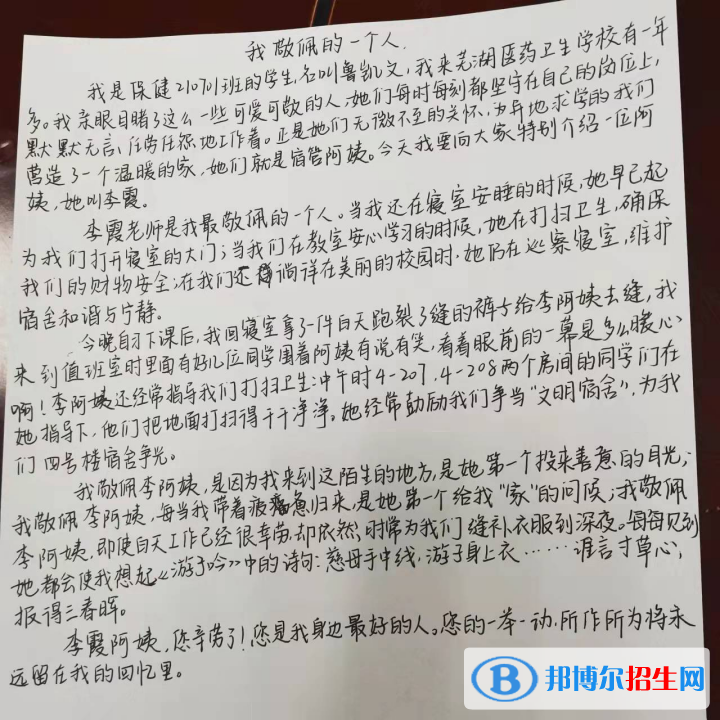 我敬佩的一个人.
我是保健210701班的学生,名叫鲁凯文,我来芜湖医药卫生学校有一年
多。我亲眼目睹了这么一些可爱可敬的人,她们每时每刻都坚守在自己的岗位上,
默默无言、任劳任怨地工作着。正是她们无微不至的关怀,为异地求学的我们
营造了一个温暖的家,她们就是宿管阿姨。今天我要向大家特别介绍一位阿
姨,她叫李霞。
李霞老师是我最敬佩的一个人。当我还在寝室安睡的时候,她早已起
为我们打开寝室的大门;当我们在教室安心学习的时候,她在打扫卫生,确保
我们的财物安全;在我们还徜徉在美丽的校园时,她仍在巡察寝室,维护
宿舍和谐与宁静。
今晚自习下课后,我回寝室拿了一件白天跑裂了缝的裤子给李阿姨去缝,我
来到值班室时里面有好几位同学围着阿姨有说有笑,看着眼前的一幕是多么暖心
啊!李阿姨还经常指导我们打扫卫生:中午时4-207.4-208两个房间的同学们在
她指导下,他们把地面打扫得干干净净。她经常鼓励我们争当“文明宿舍”,为我
们四号楼宿舍争光。
我敬佩李阿姨,是因为我来到这陌生的地方,是她第一个投来善意的目光;
我敬佩李阿姨,每当我带着疲惫归来,是她第一个给我“家”的问候;我敬佩
李阿姨,即使白天工作已经很辛劳,却依然时常为我们缝补衣服到深夜。每每见到
她都会使我想起《游子吟》中的诗句:慈母手中线,游子身上衣……谁言寸草心,
报得三春晖。
李霞阿姨,您辛劳了!您是我身边最好的人。您的一举一动,所作所为将永
远留在我的回忆里。
邦博尔招生网